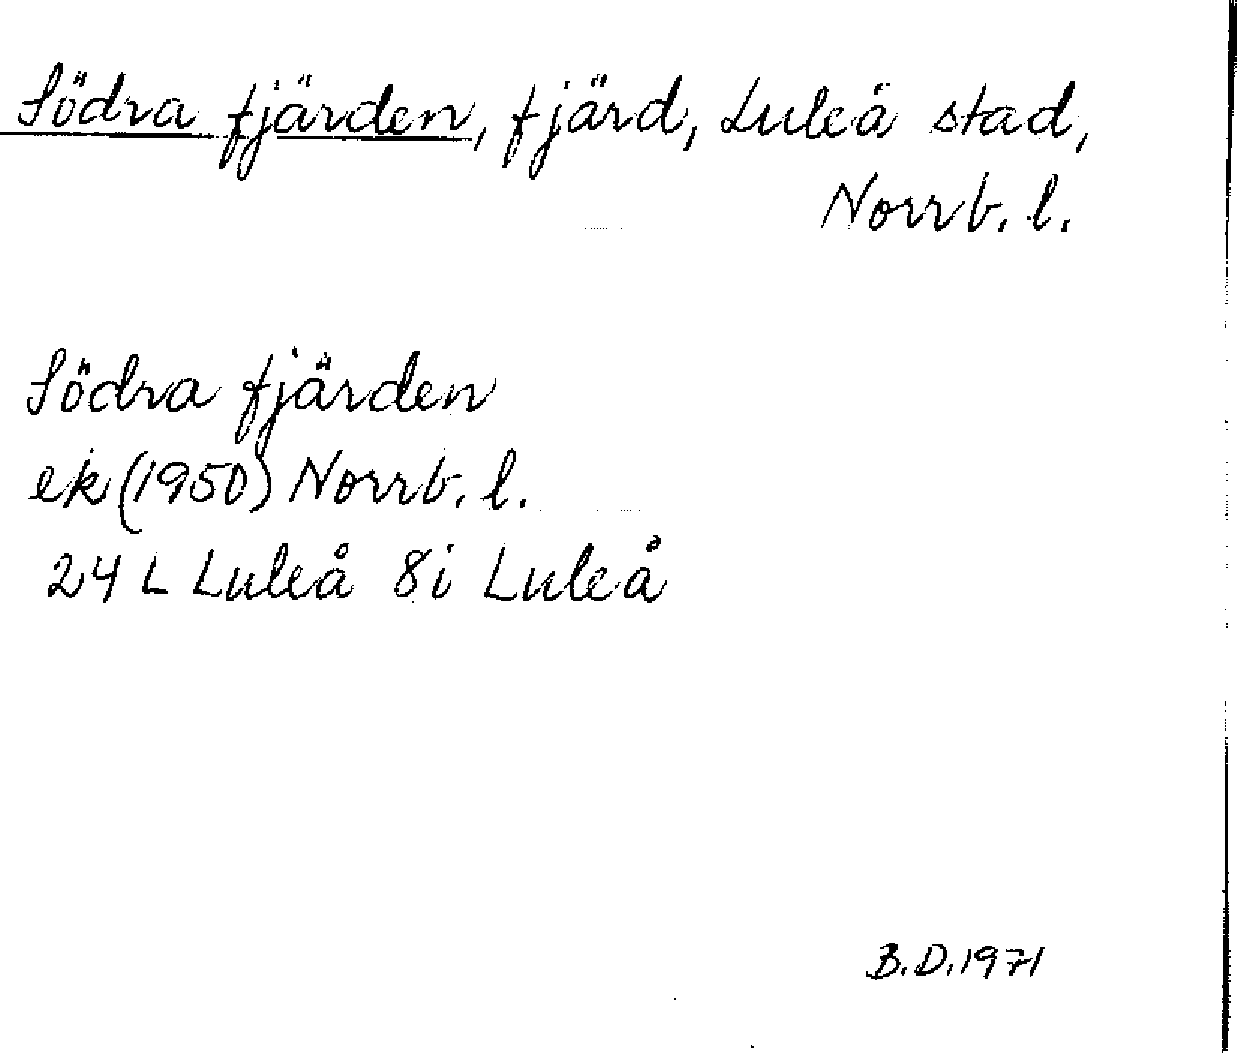 Södra fjärden, fjärd, Luleå stad,
Norrb. l.
Södra fjärden
ek (1950) Norrb. l.
24 L Luleå 8i Luleå
B.D. 1971